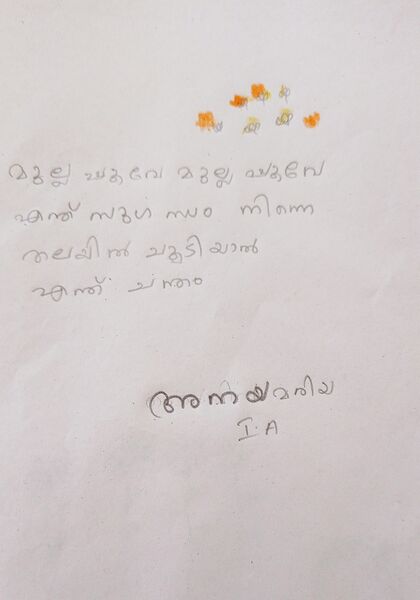 മുല്ല പൂവേ മുല്ല പൂവേ
എന്ത് സുഗ ന്ധം നിന്നെ
തലയിൽ ചൂടിയാൽ
എന്ത് ചന്തം
അന്നയമരിയ
I. A